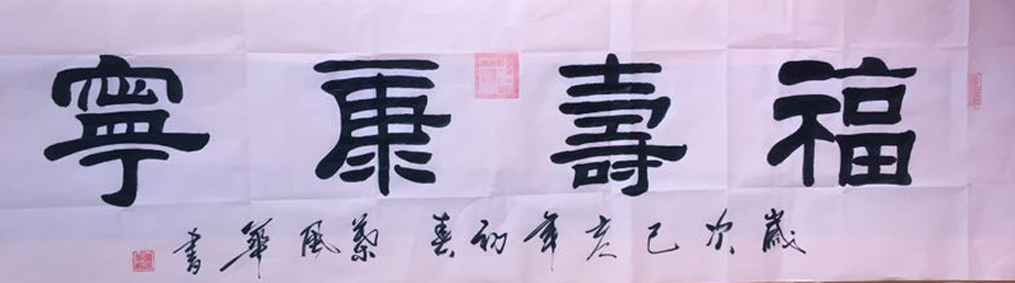 福壽康寧
歲次己亥年初春 風華書